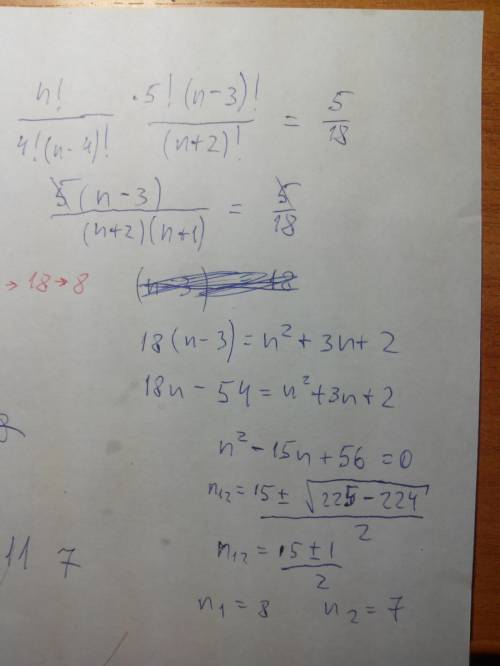 n! / 4!(n-4)! · 5!(n-3)! / (n+2)! = 5/18
5(n-3) / (n+2)(n+1) = 5/18
→ 18 → 8
18(n-3) = n² + 3n + 2
18n - 54 = n² + 3n + 2
n² - 15n + 56 = 0
n₁₂ = 15 ± √225 - 224 / 2
n₁₂ = 15 ± 1 / 2
11 7
n₁ = 8 n₂ = 7